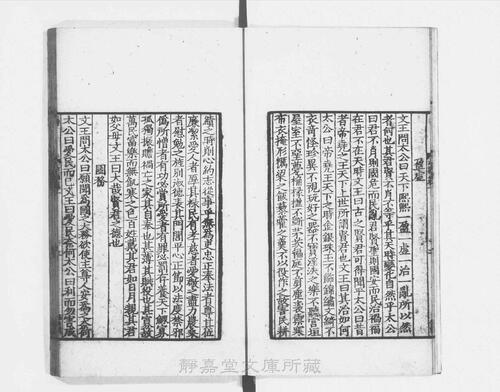 盈虛
文王問太公曰天下熙熙一盈一虛一治一亂所以然
者何也其君賢不肖不等乎其天時變化自然乎太公
曰君不肖則國危而民亂君賢聖則國安而民治禍福
在君不在天時文王曰古之賢君可得聞乎太公曰昔
者帝堯之王天下上世所謂賢君也文王曰其治如何
太公曰帝堯王天下之時金銀珠玉不飾錦繡文綺不
衣奇怪珍異不視玩好之器不寶淫泆之樂不聽宮垣
屋室不堊甍桷椽楹不斲茅茨徧庭不剪鹿裘禦寒
布衣掩形糲粱之飯藜藿之羹不以役作之故害民耕
績之時削心約志從事乎無為吏忠正奉法者尊其位
廉潔愛人者厚其祿民有孝慈者愛敬之盡力農桑
者慰勉之旌別淑德表其門閭平心正節以法度禁邪
偽所憎者有功必賞所愛者有罪必罰存養天下鰥寡
孤獨振贍禍亡之家其自奉也甚薄其賦役也甚寡故
萬民富樂而無飢寒之色百姓戴其君如日月親其君
如父母文王曰大哉賢君之德也
國務
文王問太公曰願聞為國之大務欲使主尊人安為之奈何
太公曰愛民而已文王曰愛民奈何太公曰利而勿害成
靜嘉堂文庫所藏